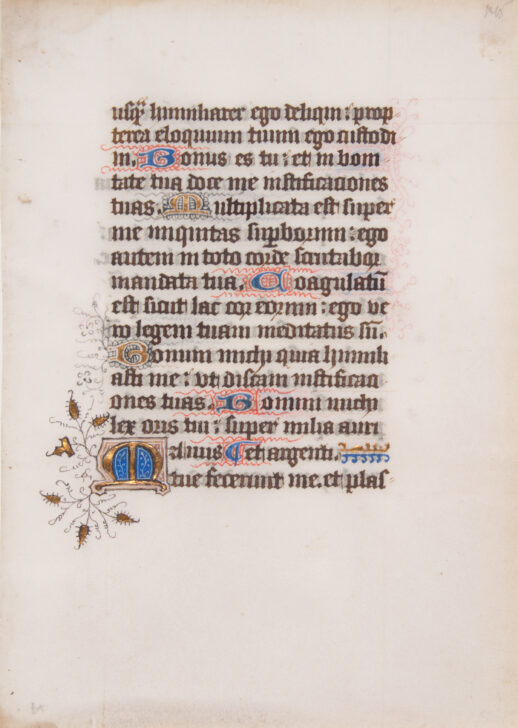 usq̃ humiliarer ego deliqui: prop
terea eloquium tuum ego custodi
ui. Bonus es tu: et in boni
tate tua doce me iustificaciones
tuas. Multiplicata est super
me iniquitas supborum: ego
autem in toto corde scrutabor
mandata tua. Coagulatū
est sicut lac cor eorum: ego ve
ro legem tuam meditatus sū.
Bonum michi quia humili
asti me: ut discam iustificaci
ones tuas. Bonum michi
lex oris tui: super milia auri
et argenti.
Manus
tue fecerunt me. et plas